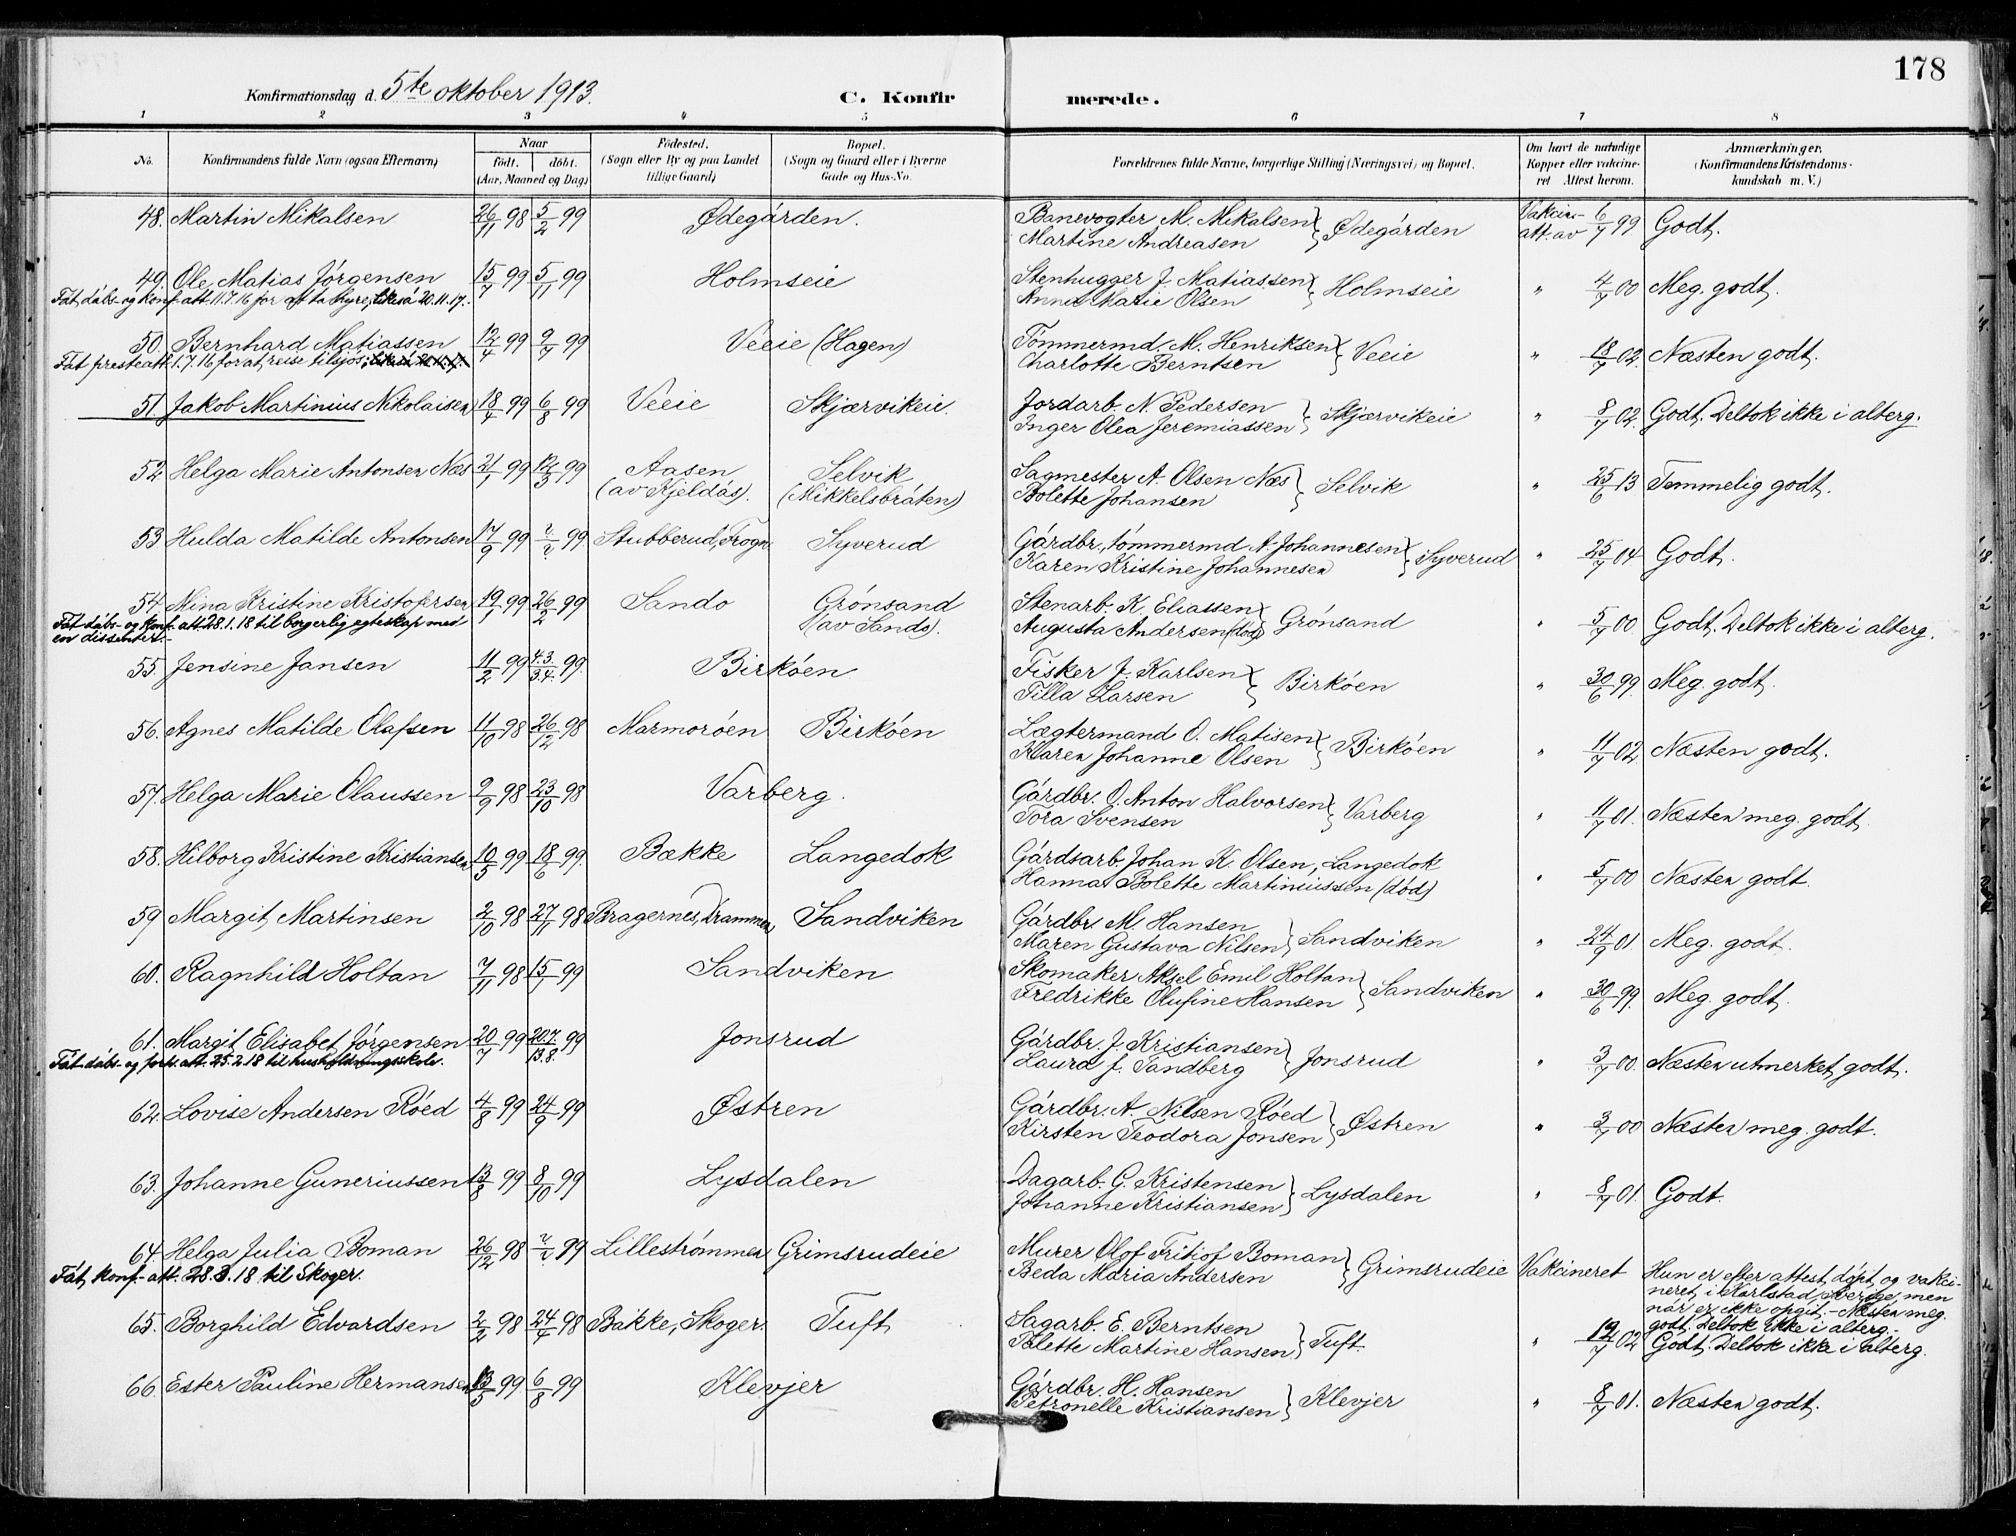 178
Konfirmationsdag d. 5te oktober 1913.
C. Konfirmerede.
1 2 3 4 5 6 7 8
No. Konfirmandens fulde Navn (ogsaa Efternavn) Naar født. døbt. (Aar, Maaned og Dag) Fødested. (Sogn eller By og paa Landet tillige Gaard) Bopæl. (Sogn og Gaard eller i Byerne Gade og Hus-No. Forældrenes fulde Navne, borgerlige Stilling (Næringsvei) og Bopæl. Om havt de naturlige Kopper eller vakcineret Attest herom. Anmærkninger. (Konfirmandens Kristendomskundskab m. V.)
48. Martin Mikalsen 26/11 98 5/2 99 Ødegården. Banevogter M. Mikalsen Martine Andreasen } Ødegården Vakcin-att. av 6/7 99 Godt.
49. Ole Matias Jörgensen 15/7 99 5/11 99 Holmseie Stenhugger J. Matiassen Anna Marie Olsen } Holmseie " 4/7 00 Meg. godt.
Fåt dåbs- og konf. att. 11.7.16 for at ta hyre, likeså 20.11.17.
50. Bernhard Matiassen 12/4 99 9/7 99 Veeie (Hagen) Tömmermd. M. Henriksen Charlotte Berntsen } Veeie " 18/7 02. Næsten godt.
Fåt presteatt. 1.7.16 for at reise tilsjös;
51. Jakob Martinius Nikolaisen 18/4 99 6/8 99 Veeie Skjærvikeie. Jordarb. N. Pedersen Inger Olea Jeremiassen } Skjærvikeie " 8/7 02. Godt. Deltok ikke i alterg.
52. Helga Marie Antonsen Næs 21/1 99 12/3 99 Aasen (av Kjeldås). Selvik (Mikkelsbråten) Sagmester A. Olsen Næs Bolette Johansen } Selvik " 25/6 13 Temmelig godt.
53 Hulda Matilde Antonsen 17/9 99 ?/? 99 Stubberud, Frogn Syverud Gårdbr., tömmermd A. Johannesen Karen Kristine Johannesen } Syverud " 25/7 04 Godt.
54. Nina Kristine Kristofersen 19/1 99 26/2 99 Sando Grönsand (av Sando). Stenarb. K. Eliassen Augusta Andersen (död) } Grönsand " 5/7 00 Godt. Deltok ikke i alterg.
Fåt dåbs- og konf. att. 28.1.18 til borgerlig egteskap med en dissenter.-
55. Jensine Jansen 11/2 99 4.3./3.4. 99. Birköen Fisker J. Karlsen Tilla Larsen } Birköen " 30/6 99. Meg. godt.
56. Agnes Matilde Olafsen 11/10 98 26/12 98 Marmoröen Birköen Lægtermand O. Matisen Karen Johanne Olsen } Birköen " 11/7 02. Næsten godt.
57. Helga Marie Olaussen 9/9 98 23/10 98 Varberg. Gårdbr. O. Anton Halvorsen Tora Svensen } Varberg " 11/7 01. Næsten meg. godt.
58. Hilborg Kristine Kristiansen 10/5 99 18/6 99. Bække Langedok Gårdsarb. Johan K. Olsen, Langedok Hanna Bolette Martiniussen (död) " 5/7 00 Næsten godt.
59 Margit Martinsen 2/10 98 27/11 98 Bragernes, Drammen Sandviken Gårdbr. M. Hansen Maren Gustava Nilsen } Sandviken " 24/9 01 Meg. godt.
60. Ragnhild Holtan 7/11 98 15/1 99 Sandviken Skomaker Aksel Emil Holtan Fredrikke Olufine Hansen } Sandviken " 30/6 99. Meg. godt.
61. Margit Elisabet Jörgensen 20/7 99 20.7./13.8. 99 Jonsrud Gårdbr. J. Kristiansen Laura J. Tandberg } Jonsrud " 3/7 00. Næsten utmerket godt.
Fåt dåbs- og konf. att. 25.2.18 til husholdningsskole.
62. Lovise Andersen Röed 4/8 99 24/9 99 Østren Gårdbr. A. Nilsen Röed Kirsten Teodora Jonsen } Østren " 3/7 00 Næsten meg. godt.
63. Johanne Guneriussen 13/8 99 8/10 99 Lysdalen Dagarb. G. Kristensen Johanne Kristiansen } Lysdalen " 8/7 01. Godt.
64. Helga Julia Boman 26/12 98 ?/? 99 Lilleströmmen Grimsrudeie Murer Olof Fritiof Boman Beda Maria Andersen } Grimsrudeie Vakcineret Hun er efter attest döpt og vakcineret i Karlstad, Sverige, men når er ikke opgit. - Næsten meg. godt. Deltok ikke i alterg.-
Fåt konf.- att. 28.3.18 til Skoger.
65. Borghild Edvardsen 2/2 98 24/4 98 Bakke, Skoger. Tuft Sagarb. E. Berntsen Bolette Martine Hansen } Tuft. " 19/7 02 Godt. Deltok ikke i alterg.
66. Ester Pauline Hermansen 13/5 99 6/8 99 Klevjer Gårdbr. H. Hansen Petronelle Kristiansen } Klevjer " 8/7 01. Næsten godt.